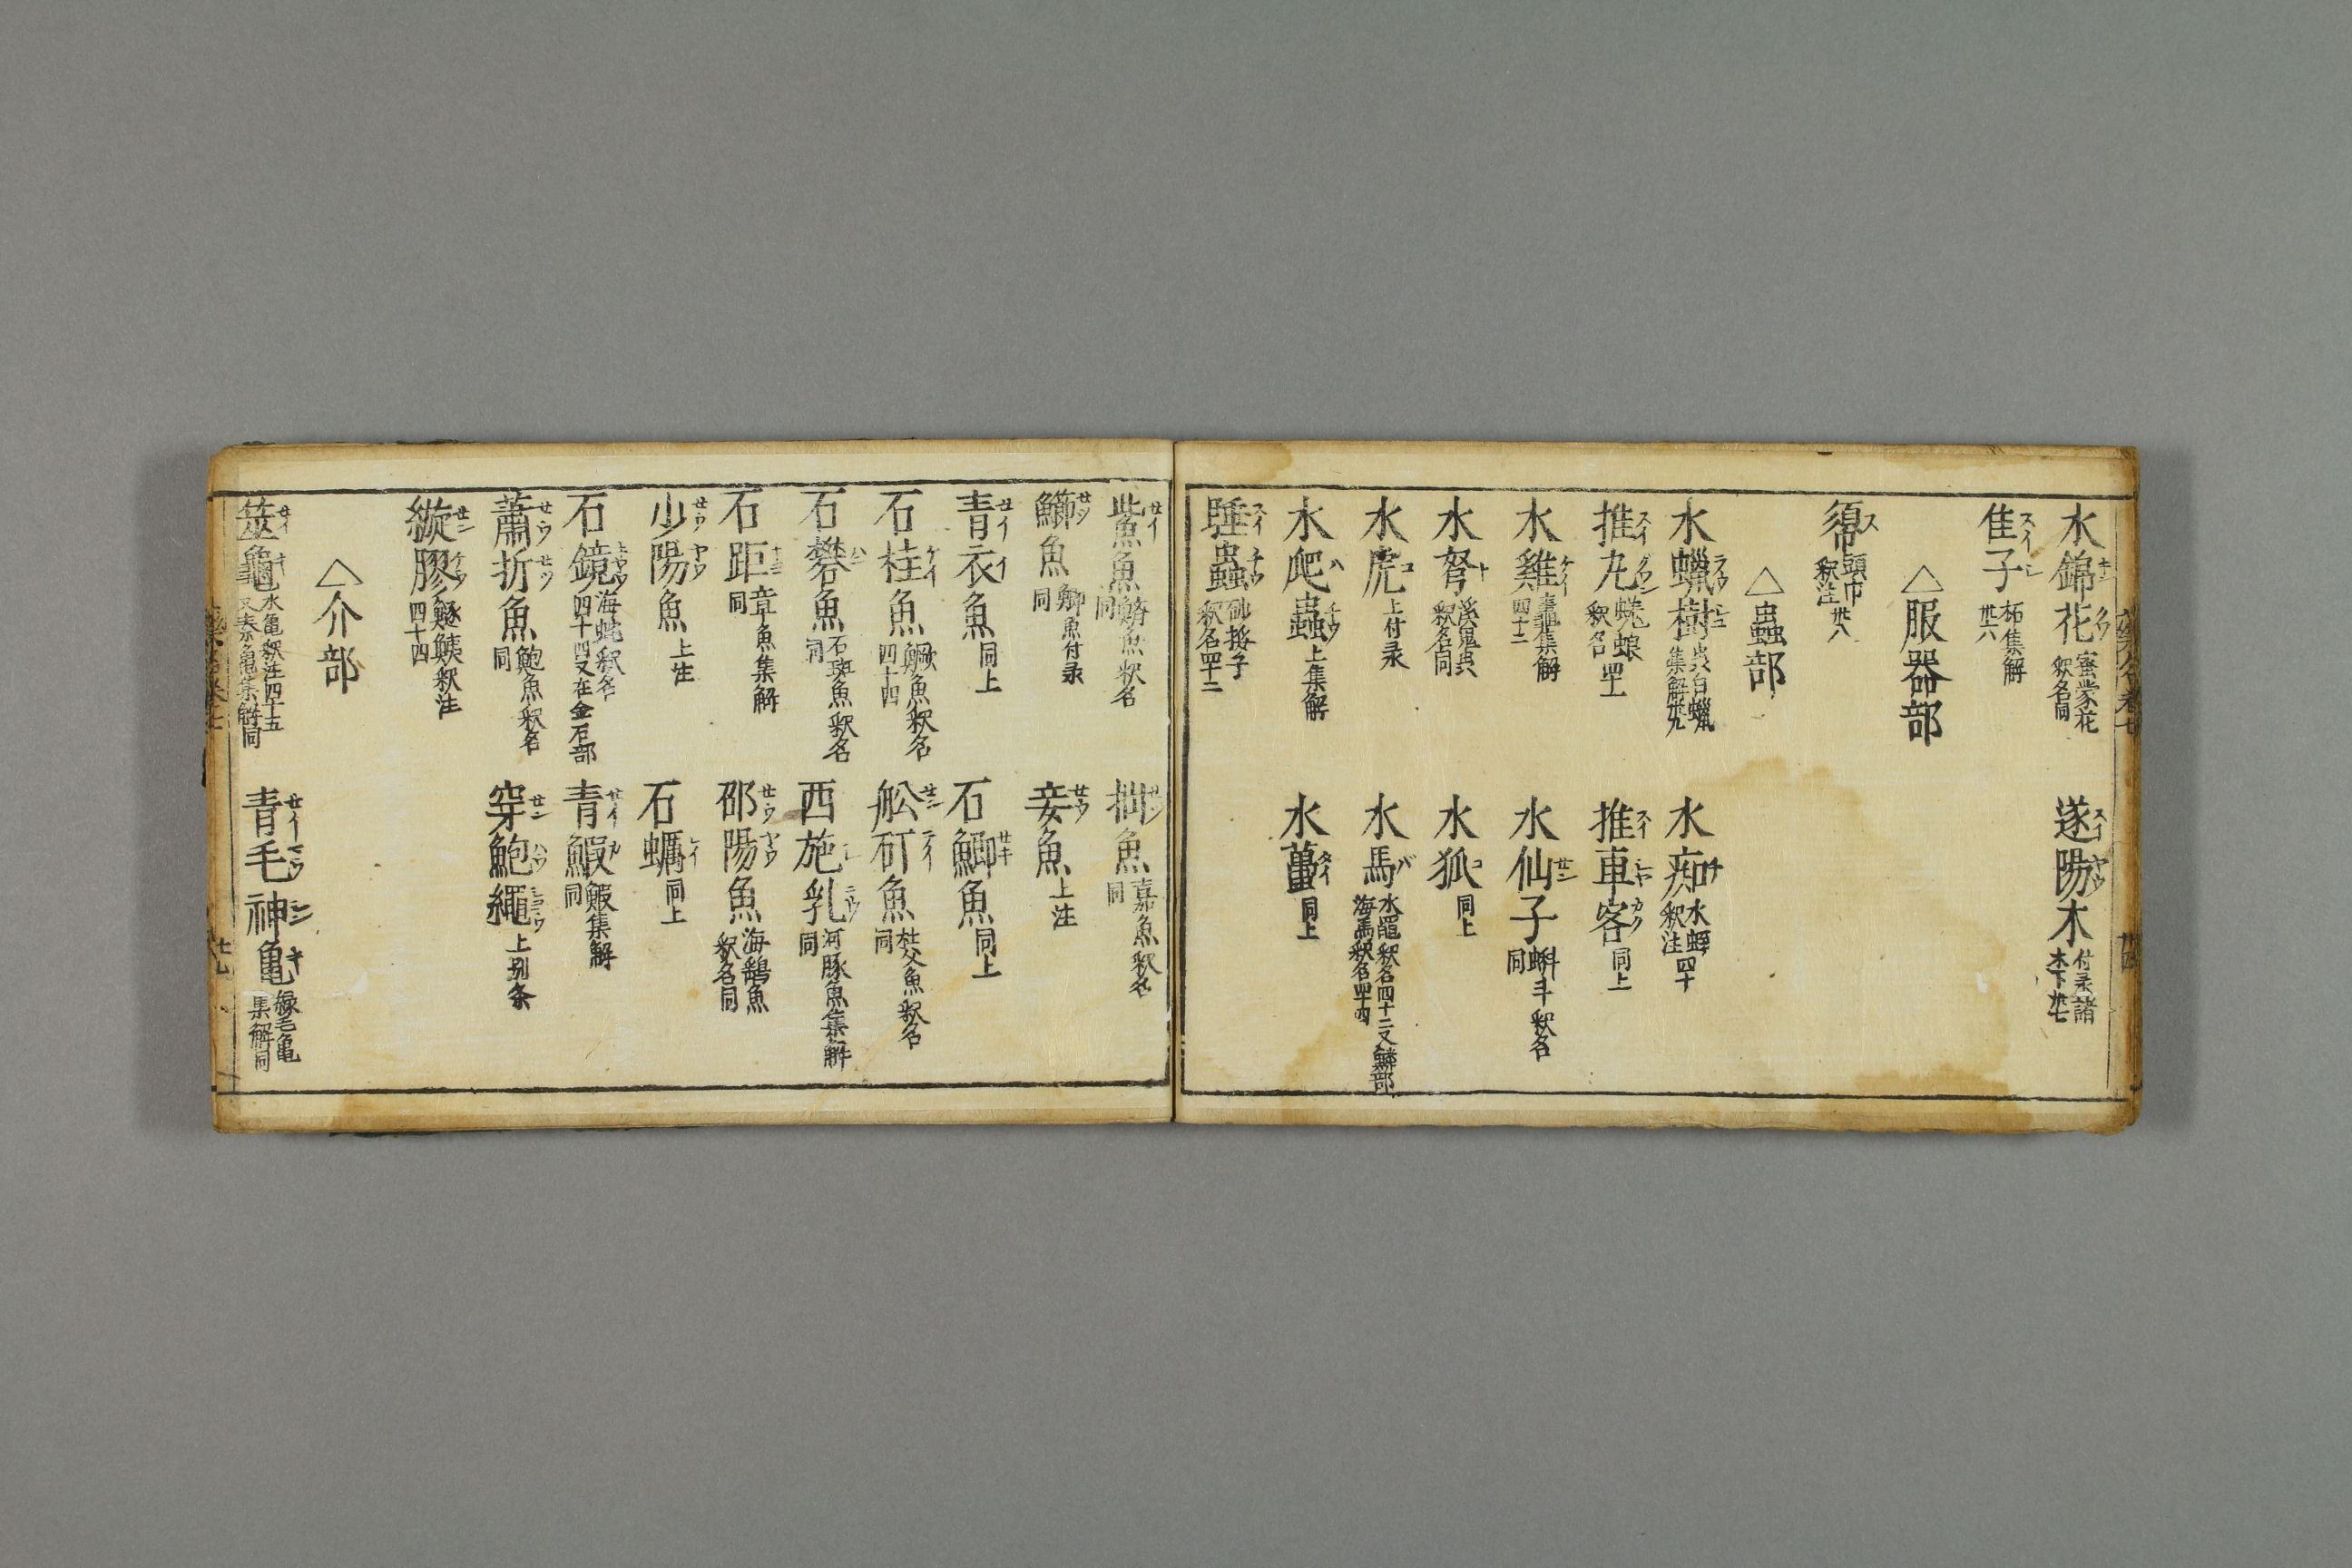 水錦花 蜜蒙花釈名同
遂陽木 付录諸木下卅七
隹子 柘集解卅六
△服器部
須帀 頭巾釈注卅八
△蟲部
水蠟樹 虫白蠟集解卅九
水痴 水蛭釈注四十
推丸 蜣蜋釈名四十一
推車客 同上
水雞 鼃集解四十二
水仙子 蝌斗釈名同
水弩 溪鬼虫釈名同
水狐 同上
水虎 上付录
水馬 水黽釈名四十二又鱗部海馬釈名四十四
水爬蟲 上集解
水蠆 同上
睡蟲 砂挼子釈名四十二
鮆魚 鱭魚釈名同
拙魚 嘉魚釈名同
鰤魚 鯽魚付录同
妾魚 上注
青衣魚 同上
石鯽魚 同上
石桂魚 鱖魚釈名四十四
舩矴魚 釈名同
石礬魚 石斑魚釈名同
西施乳 河豚魚集解同
石距 章魚集解同
邵陽魚 海鷂魚釈名同
少陽魚 上注
石蠣 同上
石鏡 海蛇釈名四十四又在金石部
青鰕 鰕集解同
蕭折魚 鮑魚釈名同
穿鮑繩 上别条
縼膠 鱁鮧釈注四十四
△介部
筮龜 水亀釈注四十五又秦亀集解同
青毛神亀 緑毛亀集解同